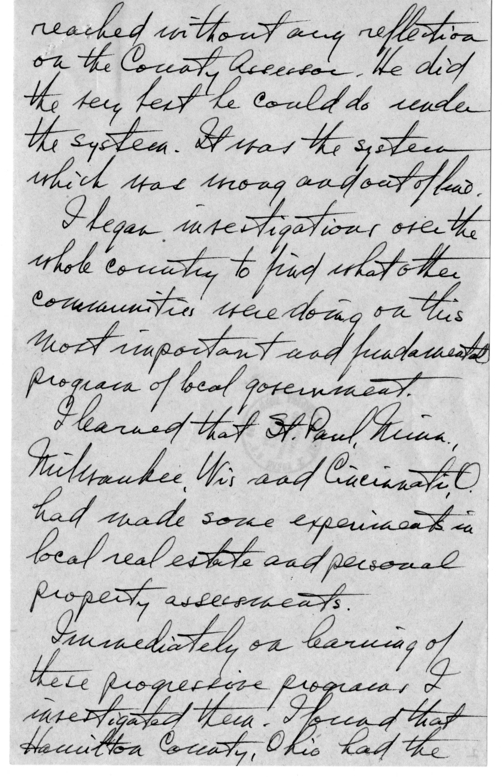 reached without any reflection
on the County Assessor. He did
the very best he could do under
the system. It was the system
which was wrong and out of line.
I began investigations over the
whole country to find what other
communities were doing on this
most important and fundamental
program of local government.
I learned that St. Paul, Minn.,
Milwaukee, Wis and Cincinnati, O.
had made some experiments in
local real estate and personal
property assessments.
Immediately on learning of
these progressive programs I
investigated them. I found that
Hamilton County, Ohio had the